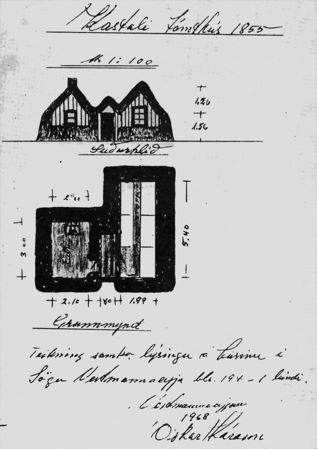 Kastali tómthús 1855
Mk 1:100
1.26
1.56
Suðurhlið
3.00
5.40
2.10 80 1.99
Grunnmynd
Teikning samkv. lýsingu á húsinu í
Sögu Vestmannaeyja bls. 194 - I bindi.
Vestmannaeyjum
1968
Óskar Kárason